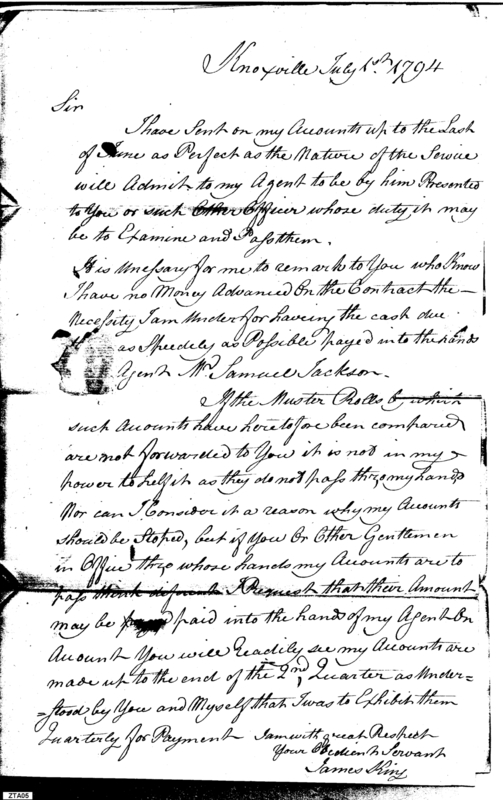 Knoxville July 1st. 1794
Sir
I have Sent on my Accounts up to the Last
of June as Perfect as the Nature of the Service
will Admit to my Agent to be by him Presented
to You or such Other Officer whose duty it may
be to Examine and Pass them.
It is Unessary for me to remark to You who Know
I have no Money Advanced On the Contract the
Necessity I am Under for having the cash due
as Speedily as Possible payed into the hands
Agent Mr. Samuel Jackson.
If the Muster Rolls by which
such Accounts have heretofore been compared
are not forwarded to You it is not in my
power to help it as they do not pass thro, my hands
Nor can I Consider it a reason why my Accounts
should be Stoped, but if You Or Other Gentlemen
in Office thro, whose hands my Accounts are to
pass think different I Request that their Amount
may be paid into the hands of my Agent On
Account You will Readily see my Accounts are
made up to the end of the 2nd, Quarter as Under=
=stood by You and Myself that I was to Exhibit them
Quarterly for Payment I am with great Respect
Your Obedient Servant
James King
ZTA05